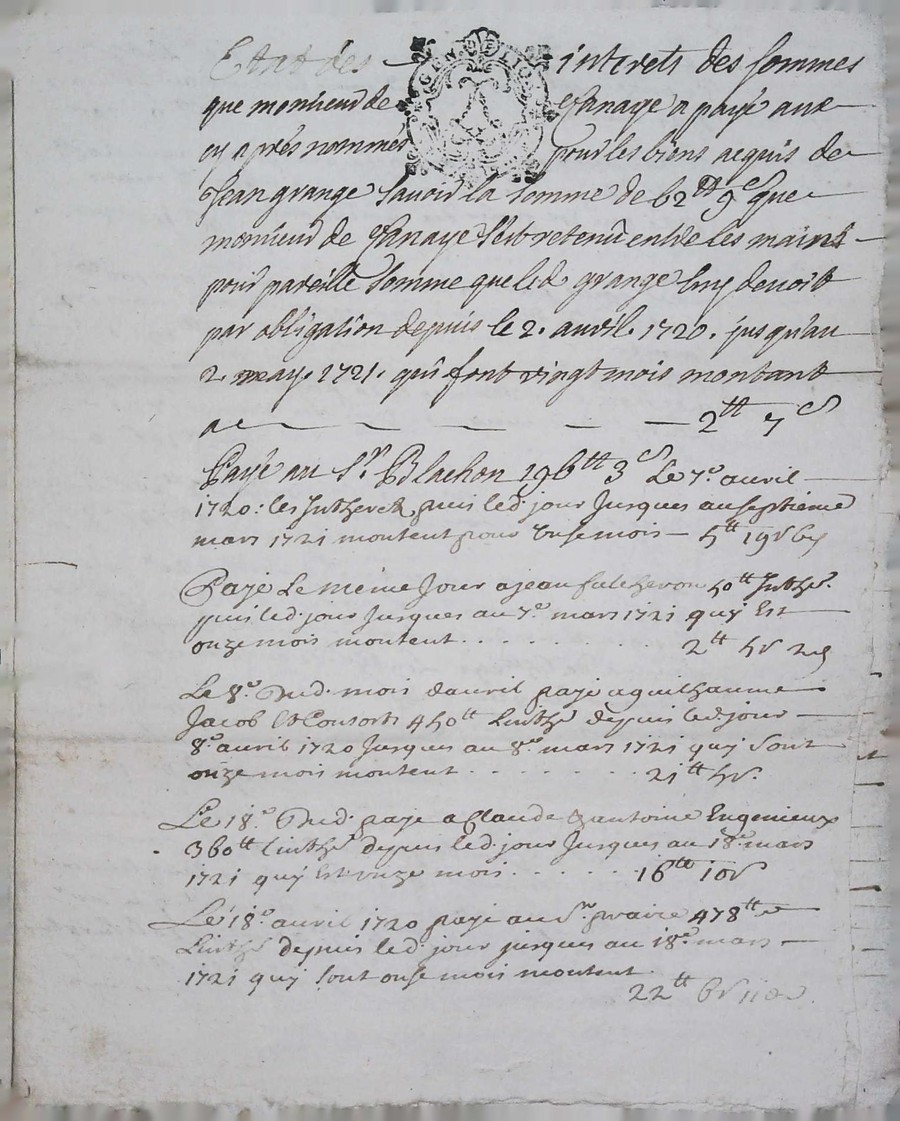 Etat des interets des sommes
que monsieur de Janaye a payé aux
cy aprés nommés pour les biens acquis de
Jean grange Savoir la somme de 62tt 9s que
monsieur de Janaye s'est retenu entre les mains
pour pareille somme que led grange luy devoit
par obligation depuis le 2. avril. 1720. jusqu'au
2. may. 1721. qui font vingt mois montant
a 2tt 7s
Payé au Sr Blachon 196tt 3s Le 7e avril
1720: les Intherets puis led jour Jusques au septieme
mars 1721 montent pour onse mois 5tt 19s 6d
Payé Le méme Jour a jean 50tt Inther.
puis led jour Jusques au 7e mars 1721 quy Est
onze mois montent 2tt 5s 2d
Le 8e Dud. mois davril payé a guilhaume
Jacob Et Consorts 450tt Linthe depuis led jour
8e avril 1720 Jusques au 8e mars 1721 quy sont
onze mois montent 21tt 5s
Le 18e Dud. paye a Claude & antoine Engenieux
360tt Linthe depuis led jour Jusques au 18e mars
1721 quy Est onze mois 16tt 10s
Le 18e avril 1720 payé au Sr praire 478tt
Linthe depuis led jour jusques au 18e mars
1721 quy sont onse mois montent
22tt 6s 11d